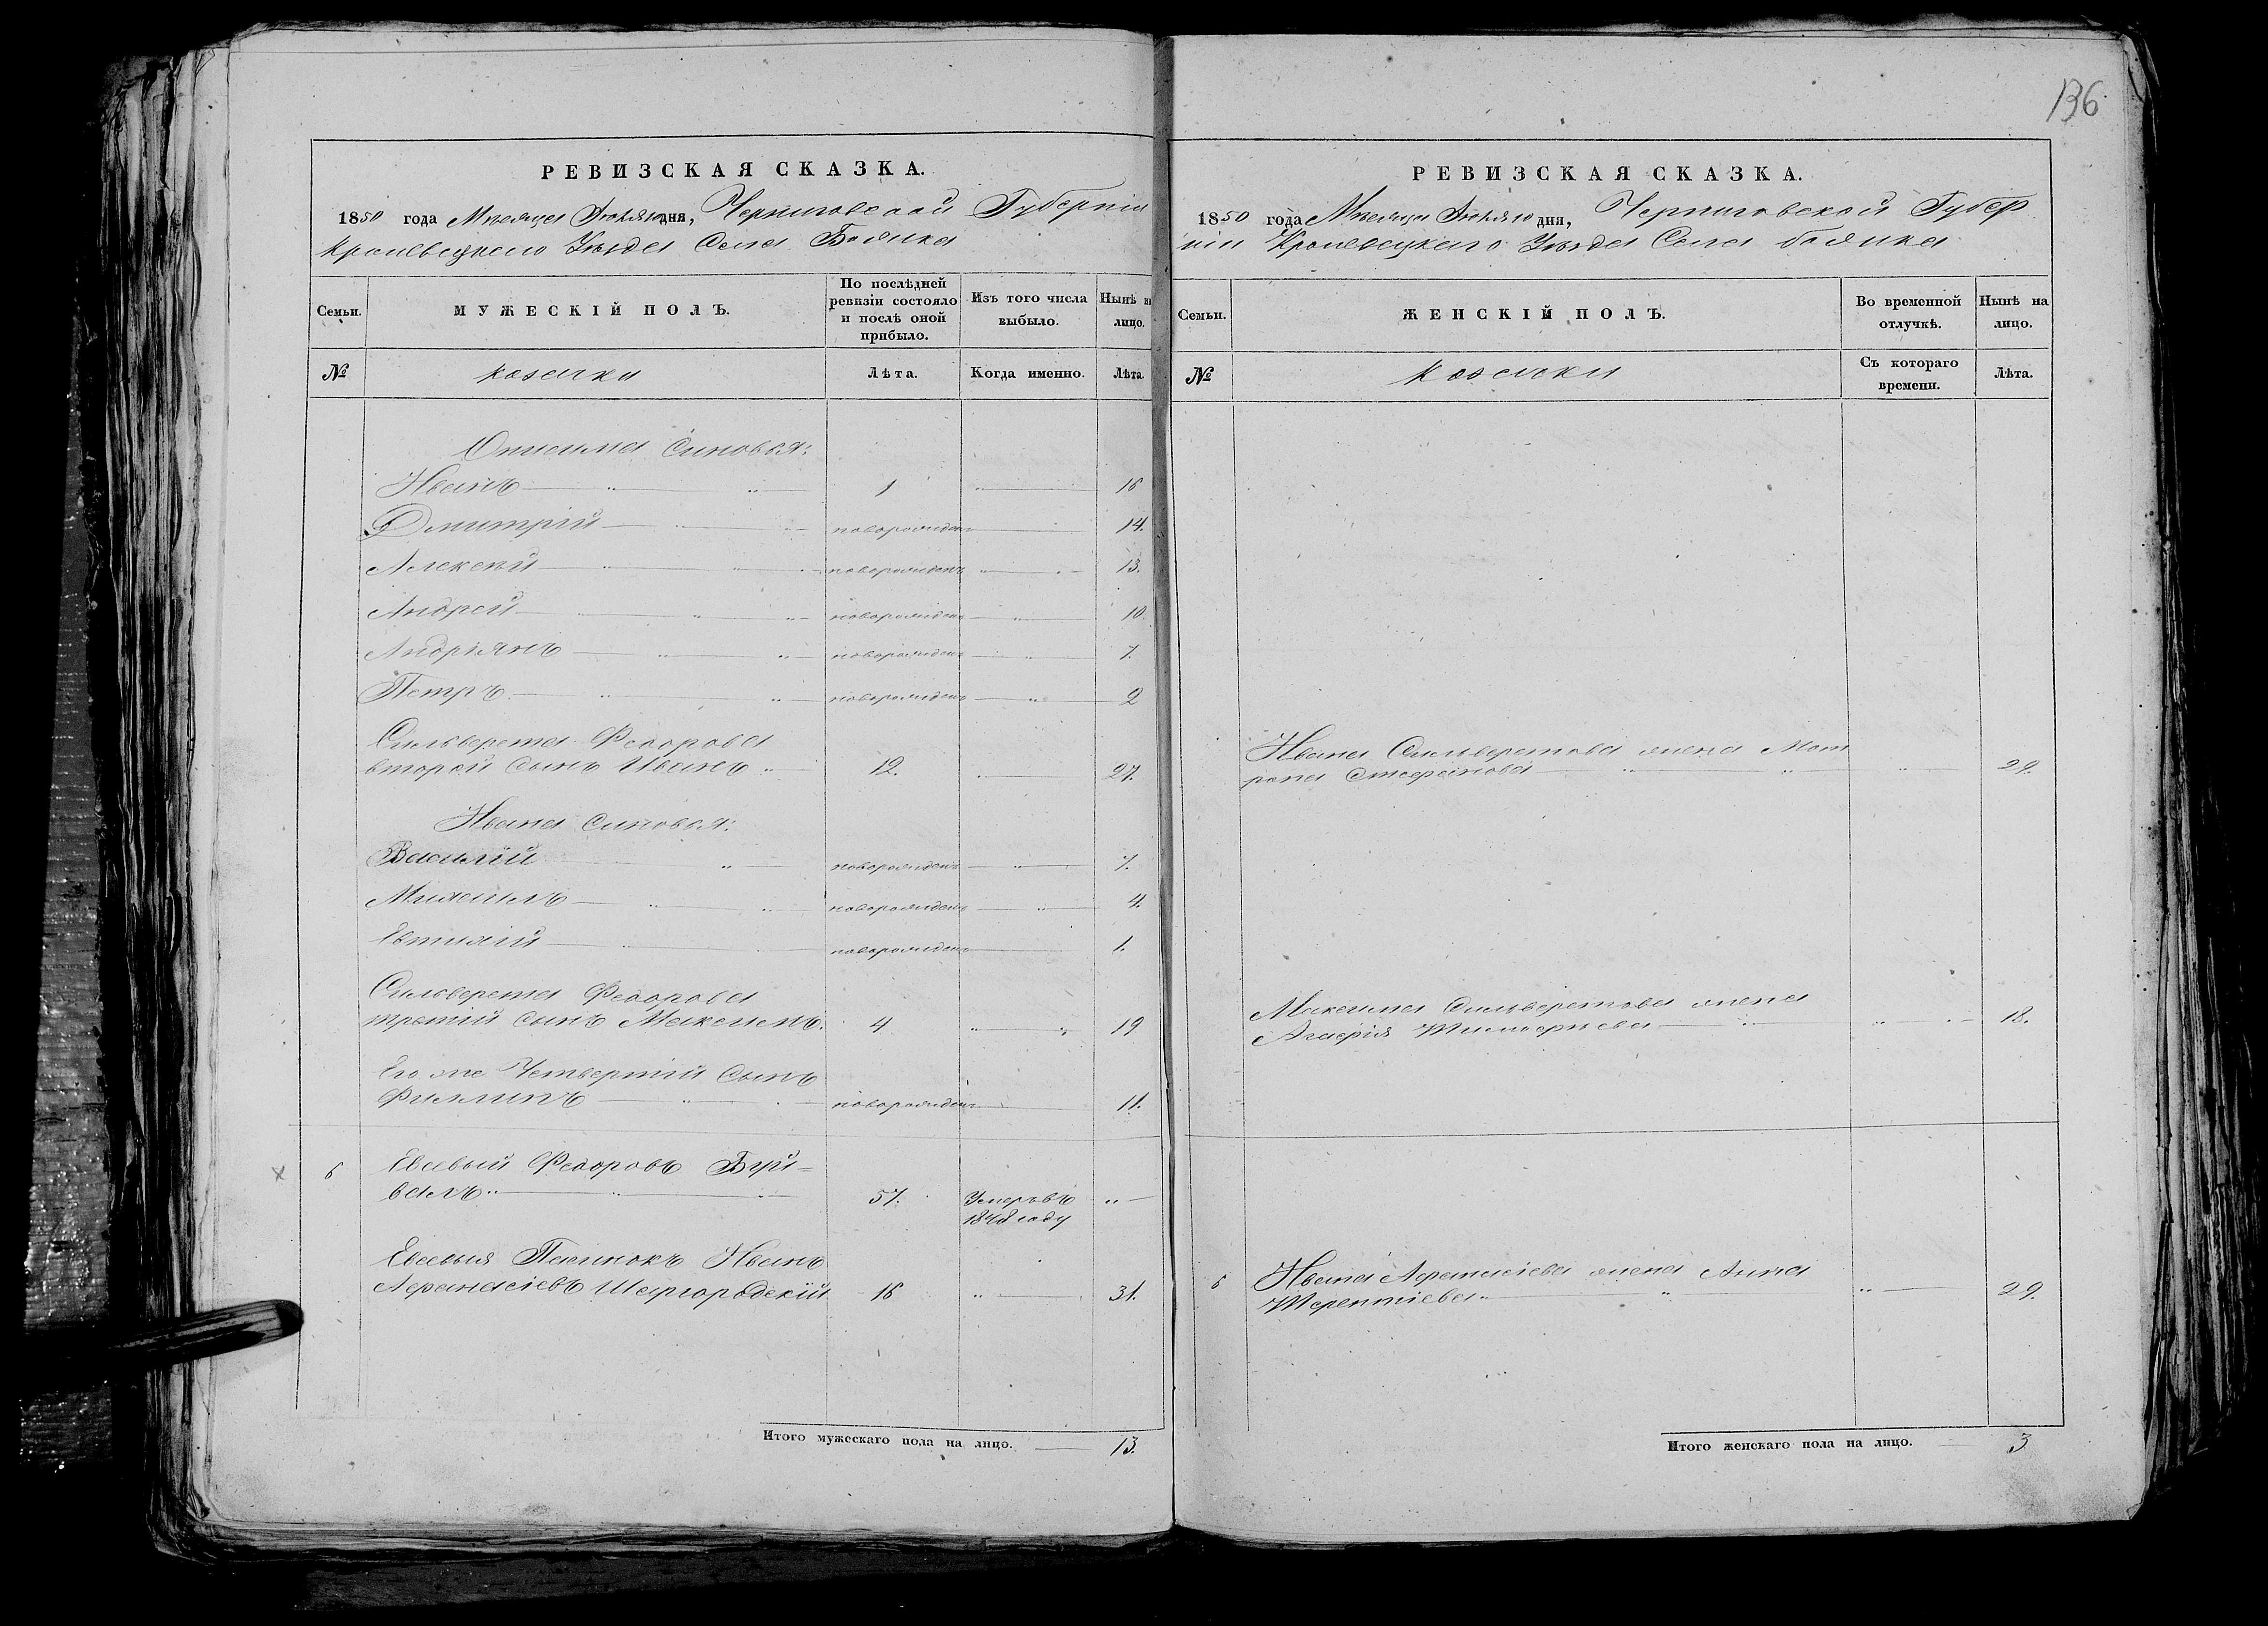 136
РЕВИЗСКАЯ СКАЗКА.
1850 года Мѣсяца дня, Черниговской Губерніи
Кролевецкаго Уѣзда Села
Семьи.
МУЖЕСКІЙ ПОЛЪ.
По послѣдней ревизіи состояло и послѣ оной прибыло.
Изъ того числа выбыло.
Нынѣ на лицо.
№
козаки
Лѣта.
Когда именно.
Лѣта.
Онисима синовья:
Иванъ 1 16
Дмитрій новорожденъ 14.
Алексѣй новорожденъ 13.
Андрей новорожденъ 10
Андріянъ новорожденъ 7.
Петръ новорожденъ 2
Сильверста Федорова
второй сынъ Иванъ 12. 27.
Ивана синовья:
Василій новорожденъ 7.
Михаилъ новорожденъ 4.
Евтихій новорожденъ 1.
Сильверста Федорова
третій сынъ Максимъ. 4 19
Его же Четвертый сынъ
Филипъ новорожденъ 11.
6 Евсевый Федоровъ Буй=
валъ 57. Умеръ въ
1848 году
Евсевыя Пасинокъ Иванъ
Афанасіевъ Шаргородскій 16 31.
Итого мужескаго пола на лицо. 13.
РЕВИЗСКАЯ СКАЗКА.
1850 года Мѣсяца дня, Черниговской Губер
ніи Кролевецкаго Уѣзда Села
Семьи.
ЖЕНСКІЙ ПОЛЪ.
Во временной отлучкѣ.
Нынѣ на лицо.
№
козачки
Съ котораго времени.
Лѣта.
Ивана Сильверстова жена Мот
рона Стефанова 29.
Максима Сильверстова жена
Агафія Тимофеева 18.
6 Ивана Афанасіева жена Анна
Терентіева 29.
Итого женскаго пола на лицо. 3